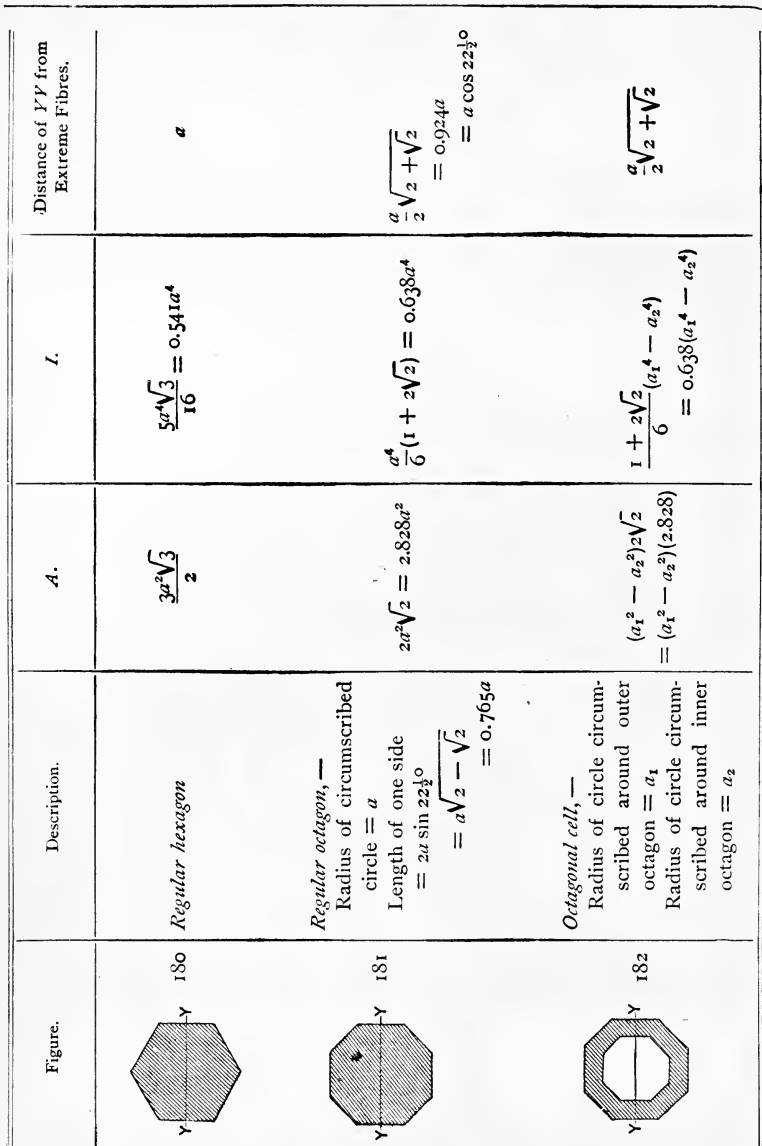 Figure. Description. A. I. Distance of YY from
Extreme Fibres.
Y Y 180 Regular hexagon 3a²√3/2 5a⁴√3/16 = 0.541a⁴ a
Y Y 181 Regular octagon,—
Radius of circumscribed
circle = a
Length of one side
= 2a sin 22½°
= a√(2 − √2)
= 0.765a
2a²√2 = 2.828a²
a⁴/6(1 + 2√2) = 0.638a⁴
a/2√(2 + √2)
= 0.924a
= a cos 22½°
Y Y 182 Octagonal cell,—
Radius of circle circum-
scribed around outer
octagon = a₁
Radius of circle circum-
scribed around inner
octagon = a₂
(a₁² − a₂²)2√2
= (a₁² − a₂²)(2.828)
(1 + 2√2)/6(a₁⁴ − a₂⁴)
= 0.638(a₁⁴ − a₂⁴)
a/2√(2 + √2)